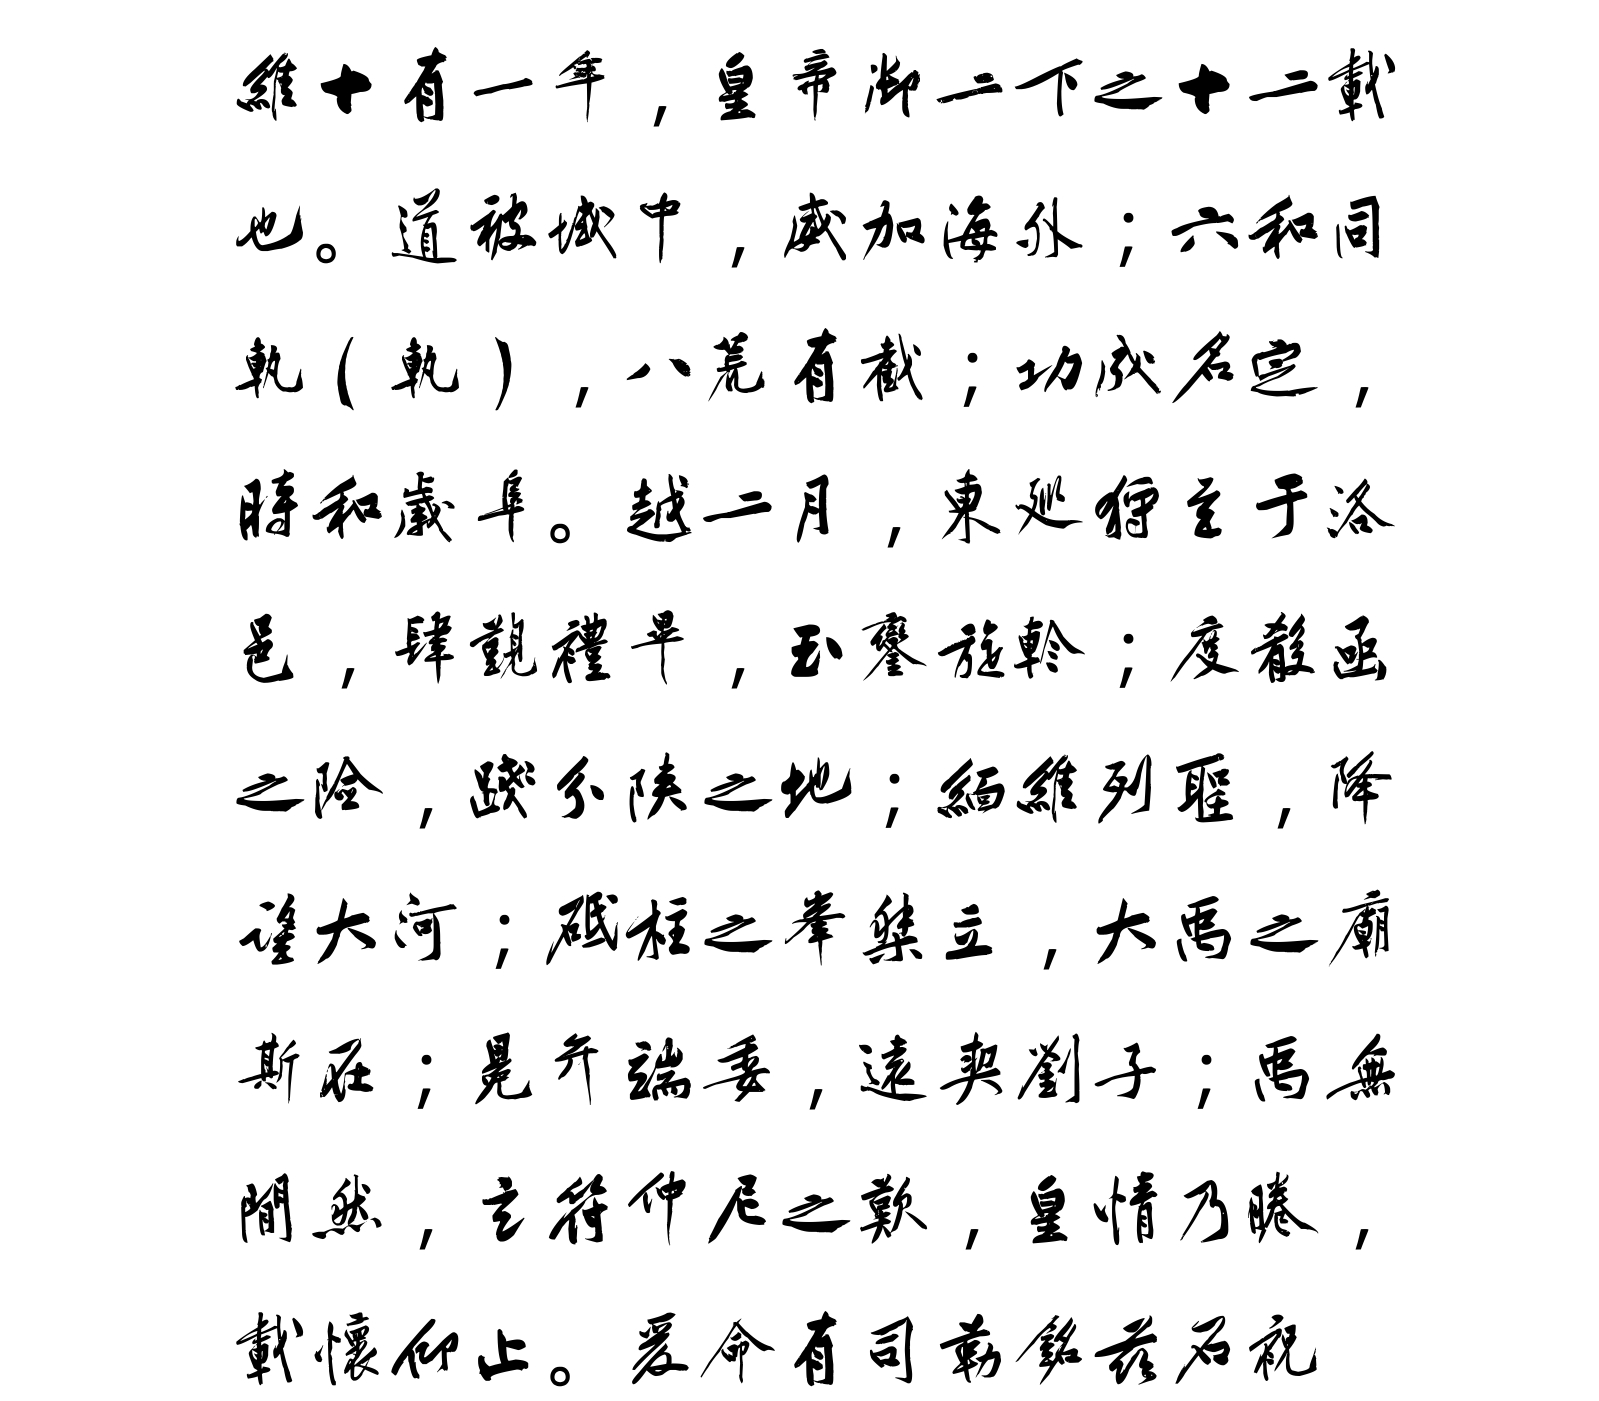 維十有一年，皇帝御二下之十二載
也。道被域中，威加海外；六和同
軌（軌），八荒有截；功成名定，
時和歲阜。越二月，東巡狩至于洛
邑，肆覲禮畢，玉鑾旋軫；度殽函
之險，踐分陝之地；緬維列聖，降
望大河；砥柱之峯桀立，大禹之廟
斯在；冕弁端委，遠契劉子；禹無
間然，玄符仲尼之歎，皇情乃睠，
載懷仰止。爰命有司勒銘兹石祝